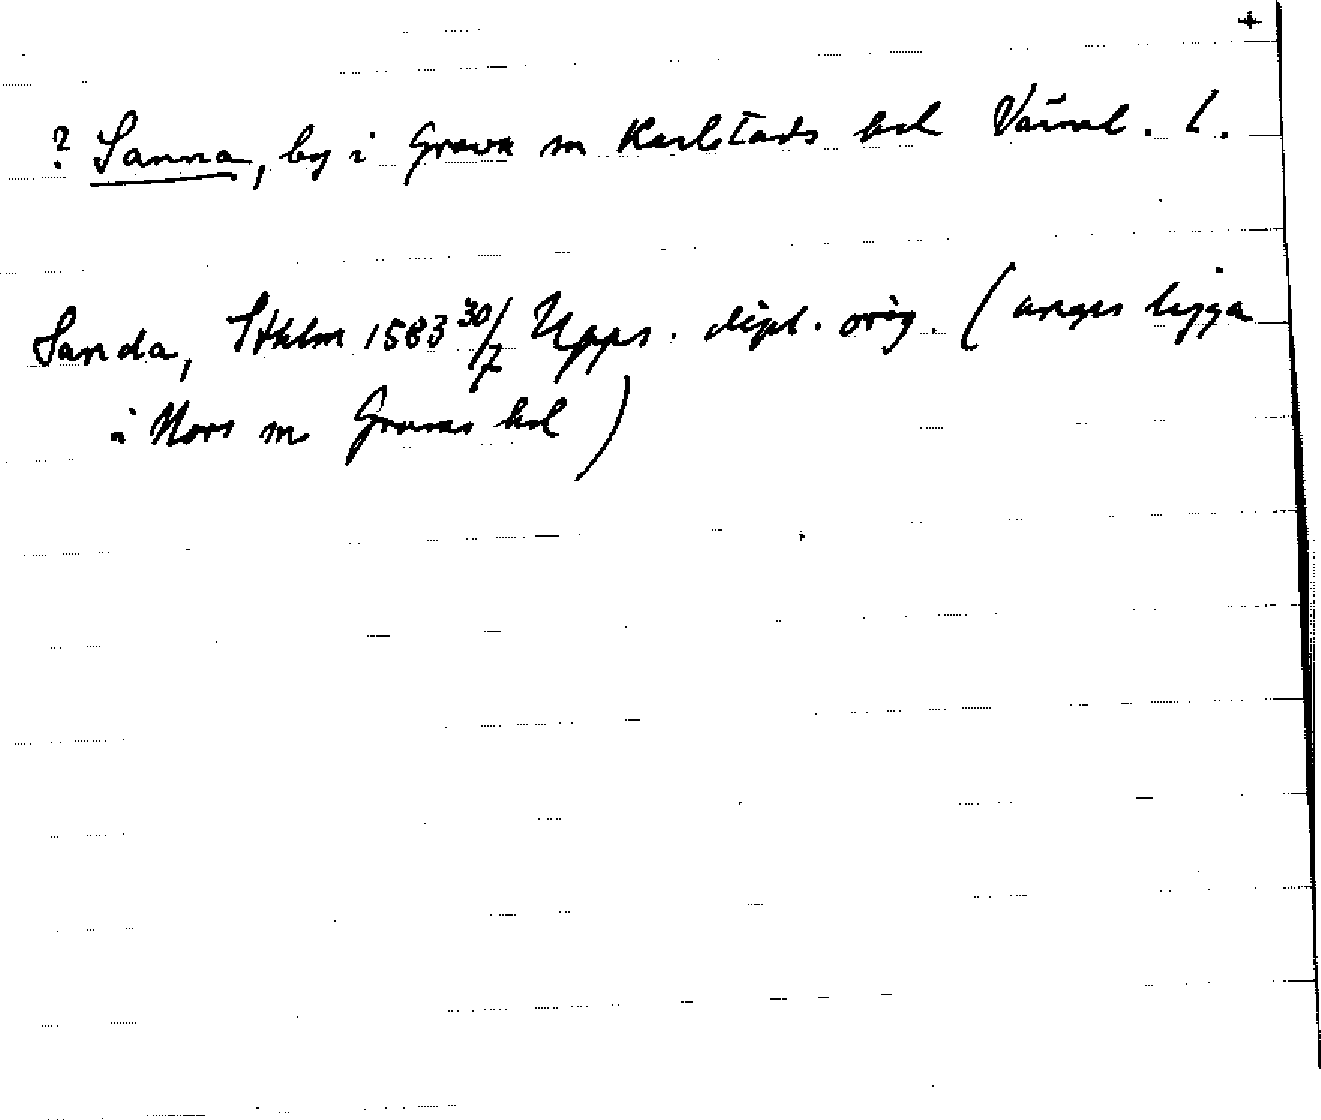 +
? Sanna, by i Grava sn Karlstads hd Värml. l.
Sanda, Sthlm 1583 30/7 Upps. dipl. orig. (anges ligga
i Nors sn Grums hd)